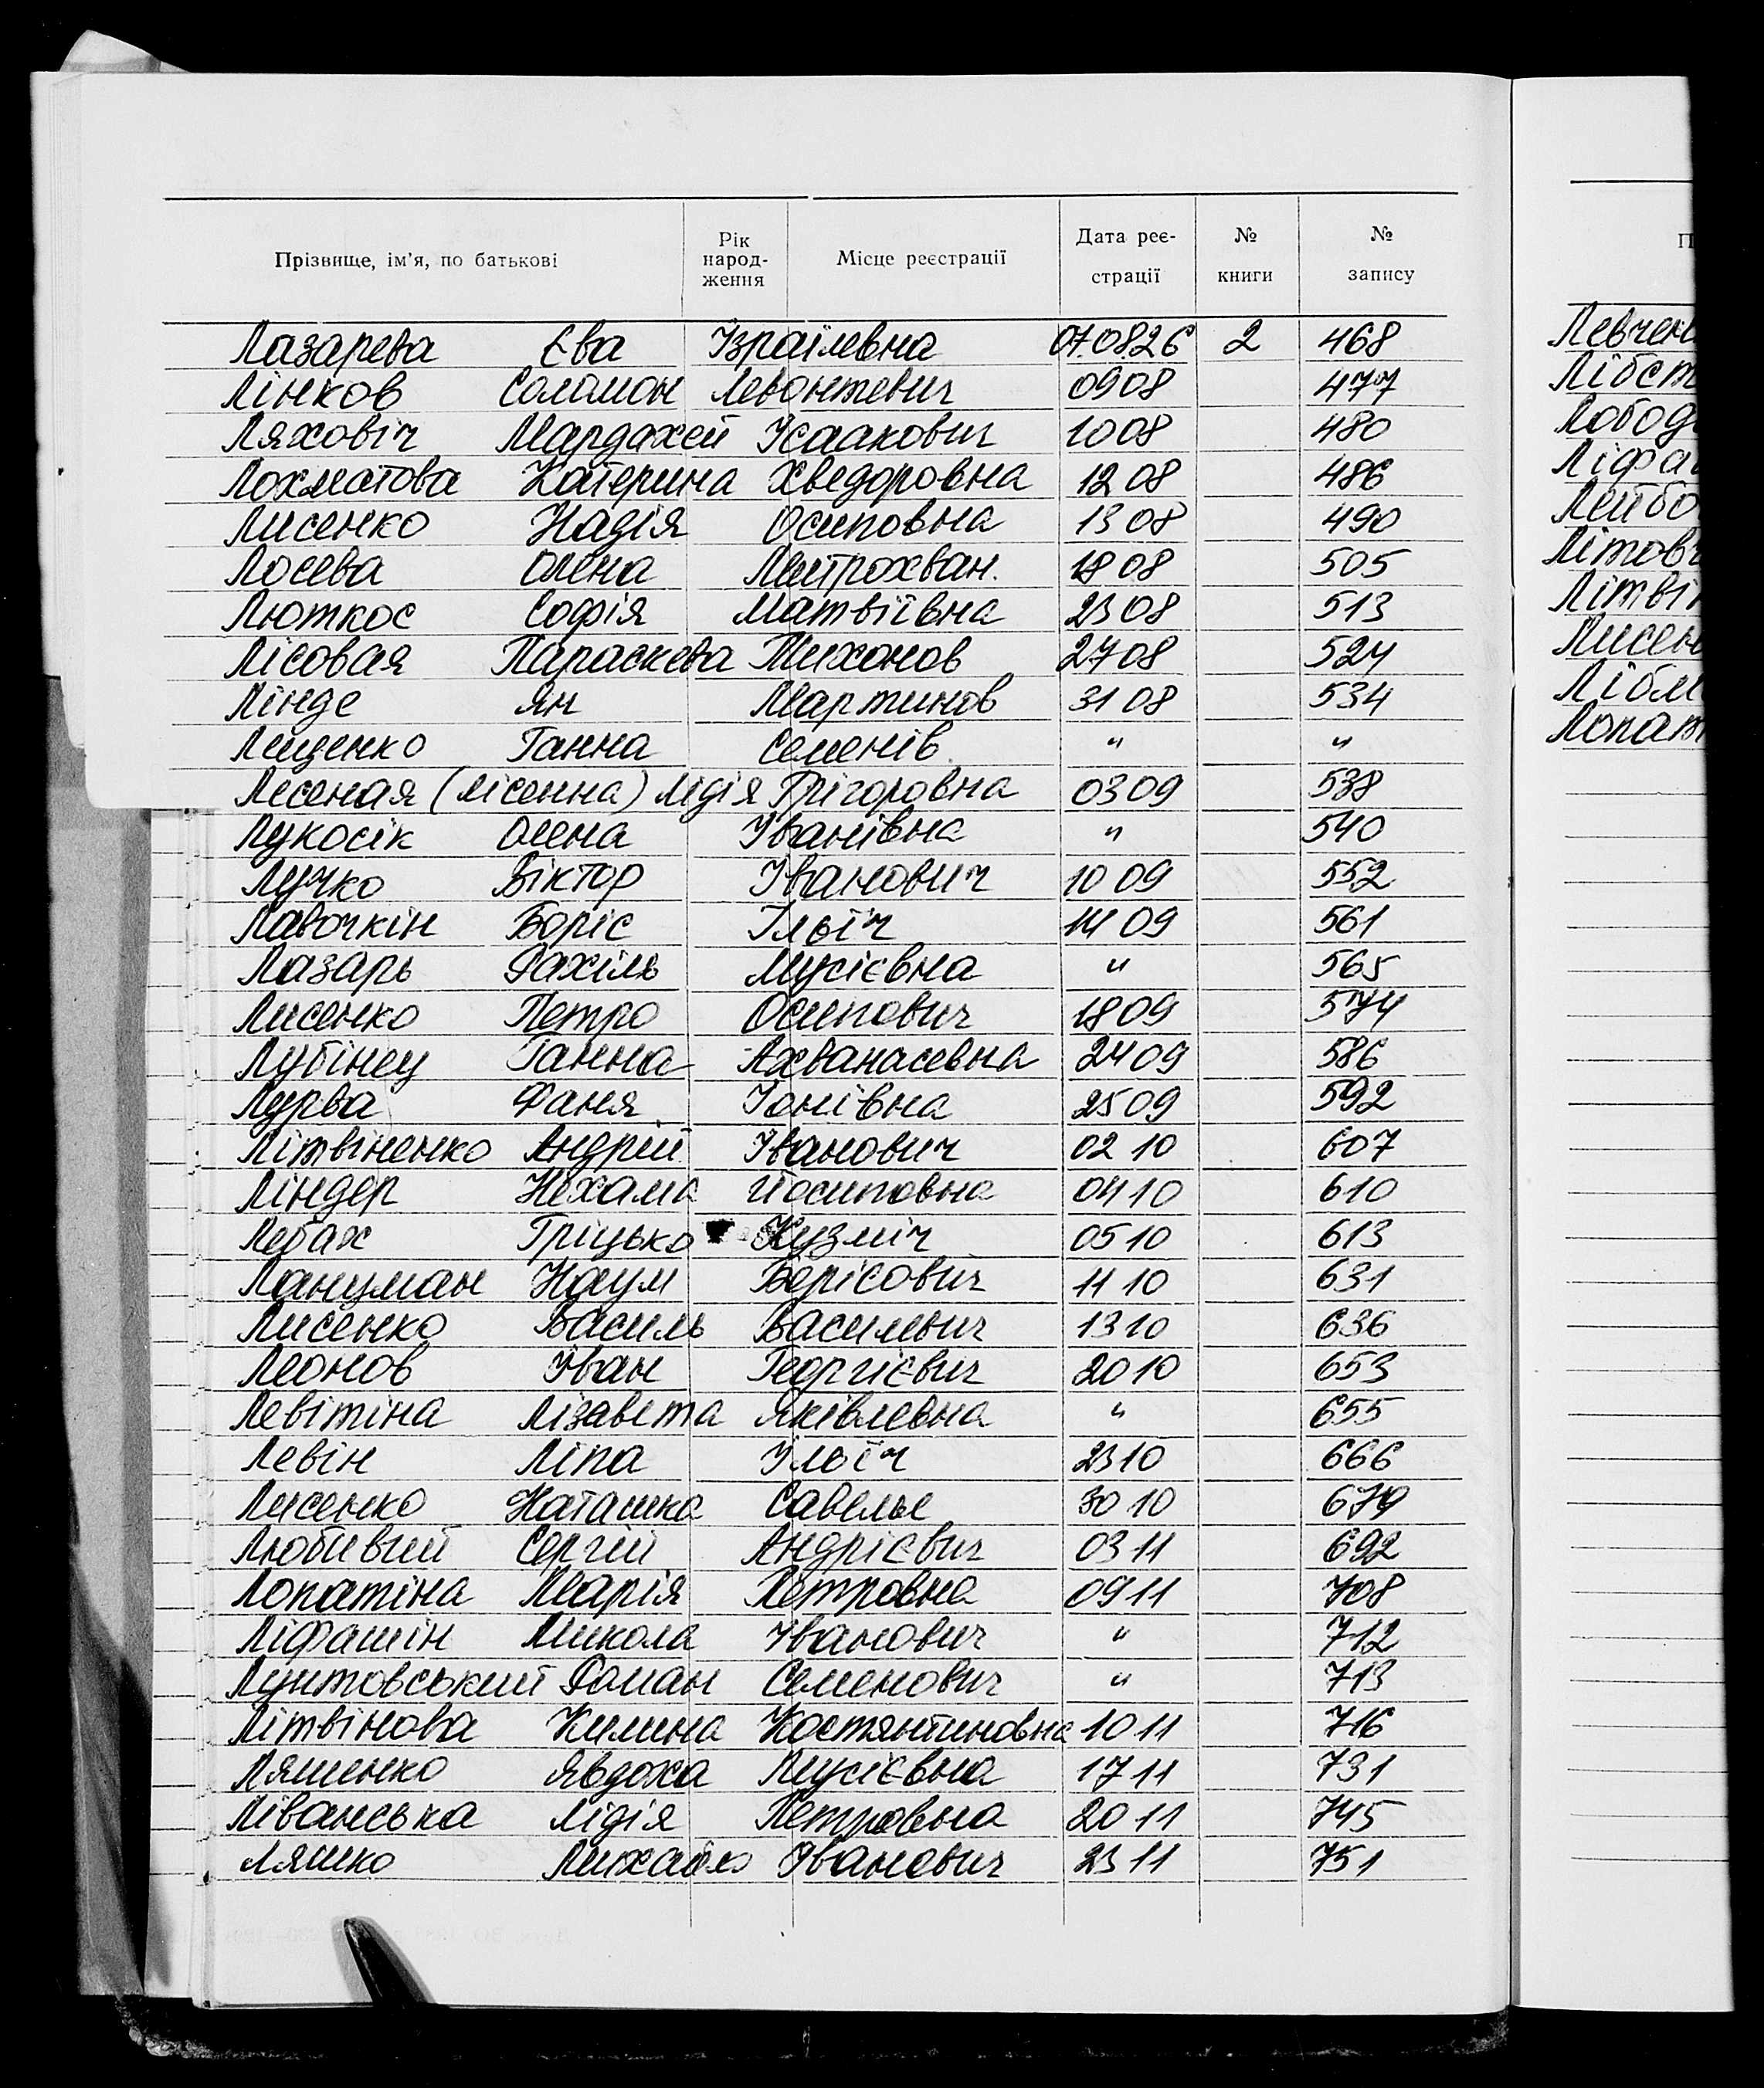 Прізвище, ім'я, по батькові Рік народ-ження Місце реєстрації Дата реє-страції № книги № запису
Лазарева Єва Ізраїлевна 07.08.26 2 468
Лінков Соломон Левонтевич 09 08 477
Ляховіч Мардахей Ісаакович 10 08 480
Лохматова Катерина Хведоровна 12 08 486
Лисенко Надія Осиповна 13 08 490
Лосева Олена Митрохван. 18 08 505
Люткос Софія Матвіївна 23 08 513
Лісовая Параскева Тихонов 27 08 524
Лінде Ян Мартинов 31 08 534
Лещенко Ганна Семенів. " "
Лесеная (Лісенна) Лідія Грігоровна 03 09 538
Лукосік Олена Іванівна " 540
Лучко Віктор Іванович 10 09 552
Лавочкін Боріс Ільїч 14 09 561
Лазарь Рахіль Мусієвна " 565
Лисенко Петро Осипович 18 09 574
Лубінец Ганна Ахванасевна 24 09 586
Лурва Фаня Іонівна 25 09 592
Літвіненко Андрій Іванович 02 10 607
Ліндер Нехама Йосиповна 04 10 610
Лебах Гріцько Кузміч 05 10 613
Ланцман Наум Борісович 11 10 631
Лисенко Василь Васильвич 13 10 636
Леонов Іван Георгієвич 20 10 653
Левітіна Лізавета Яківлевна " 655
Левін Ліпа Ільїч 23 10 666
Лисенко Наташка Савелье 30 10 679
Любивий Сергій Андрієвич 03 11 692
Лопатіна Марія Петровна 09 11 708
Ліфашін Микола Іванович " 712
Лунтовський Роман Семенович " 713
Літвінова Килина Костянтиновна 10 11 716
Ляшенко Явдоха Мусієвна 17 11 731
Ліванська Лідія Петровна 20 11 745
Ляшко Михайло Іванович 23 11 751